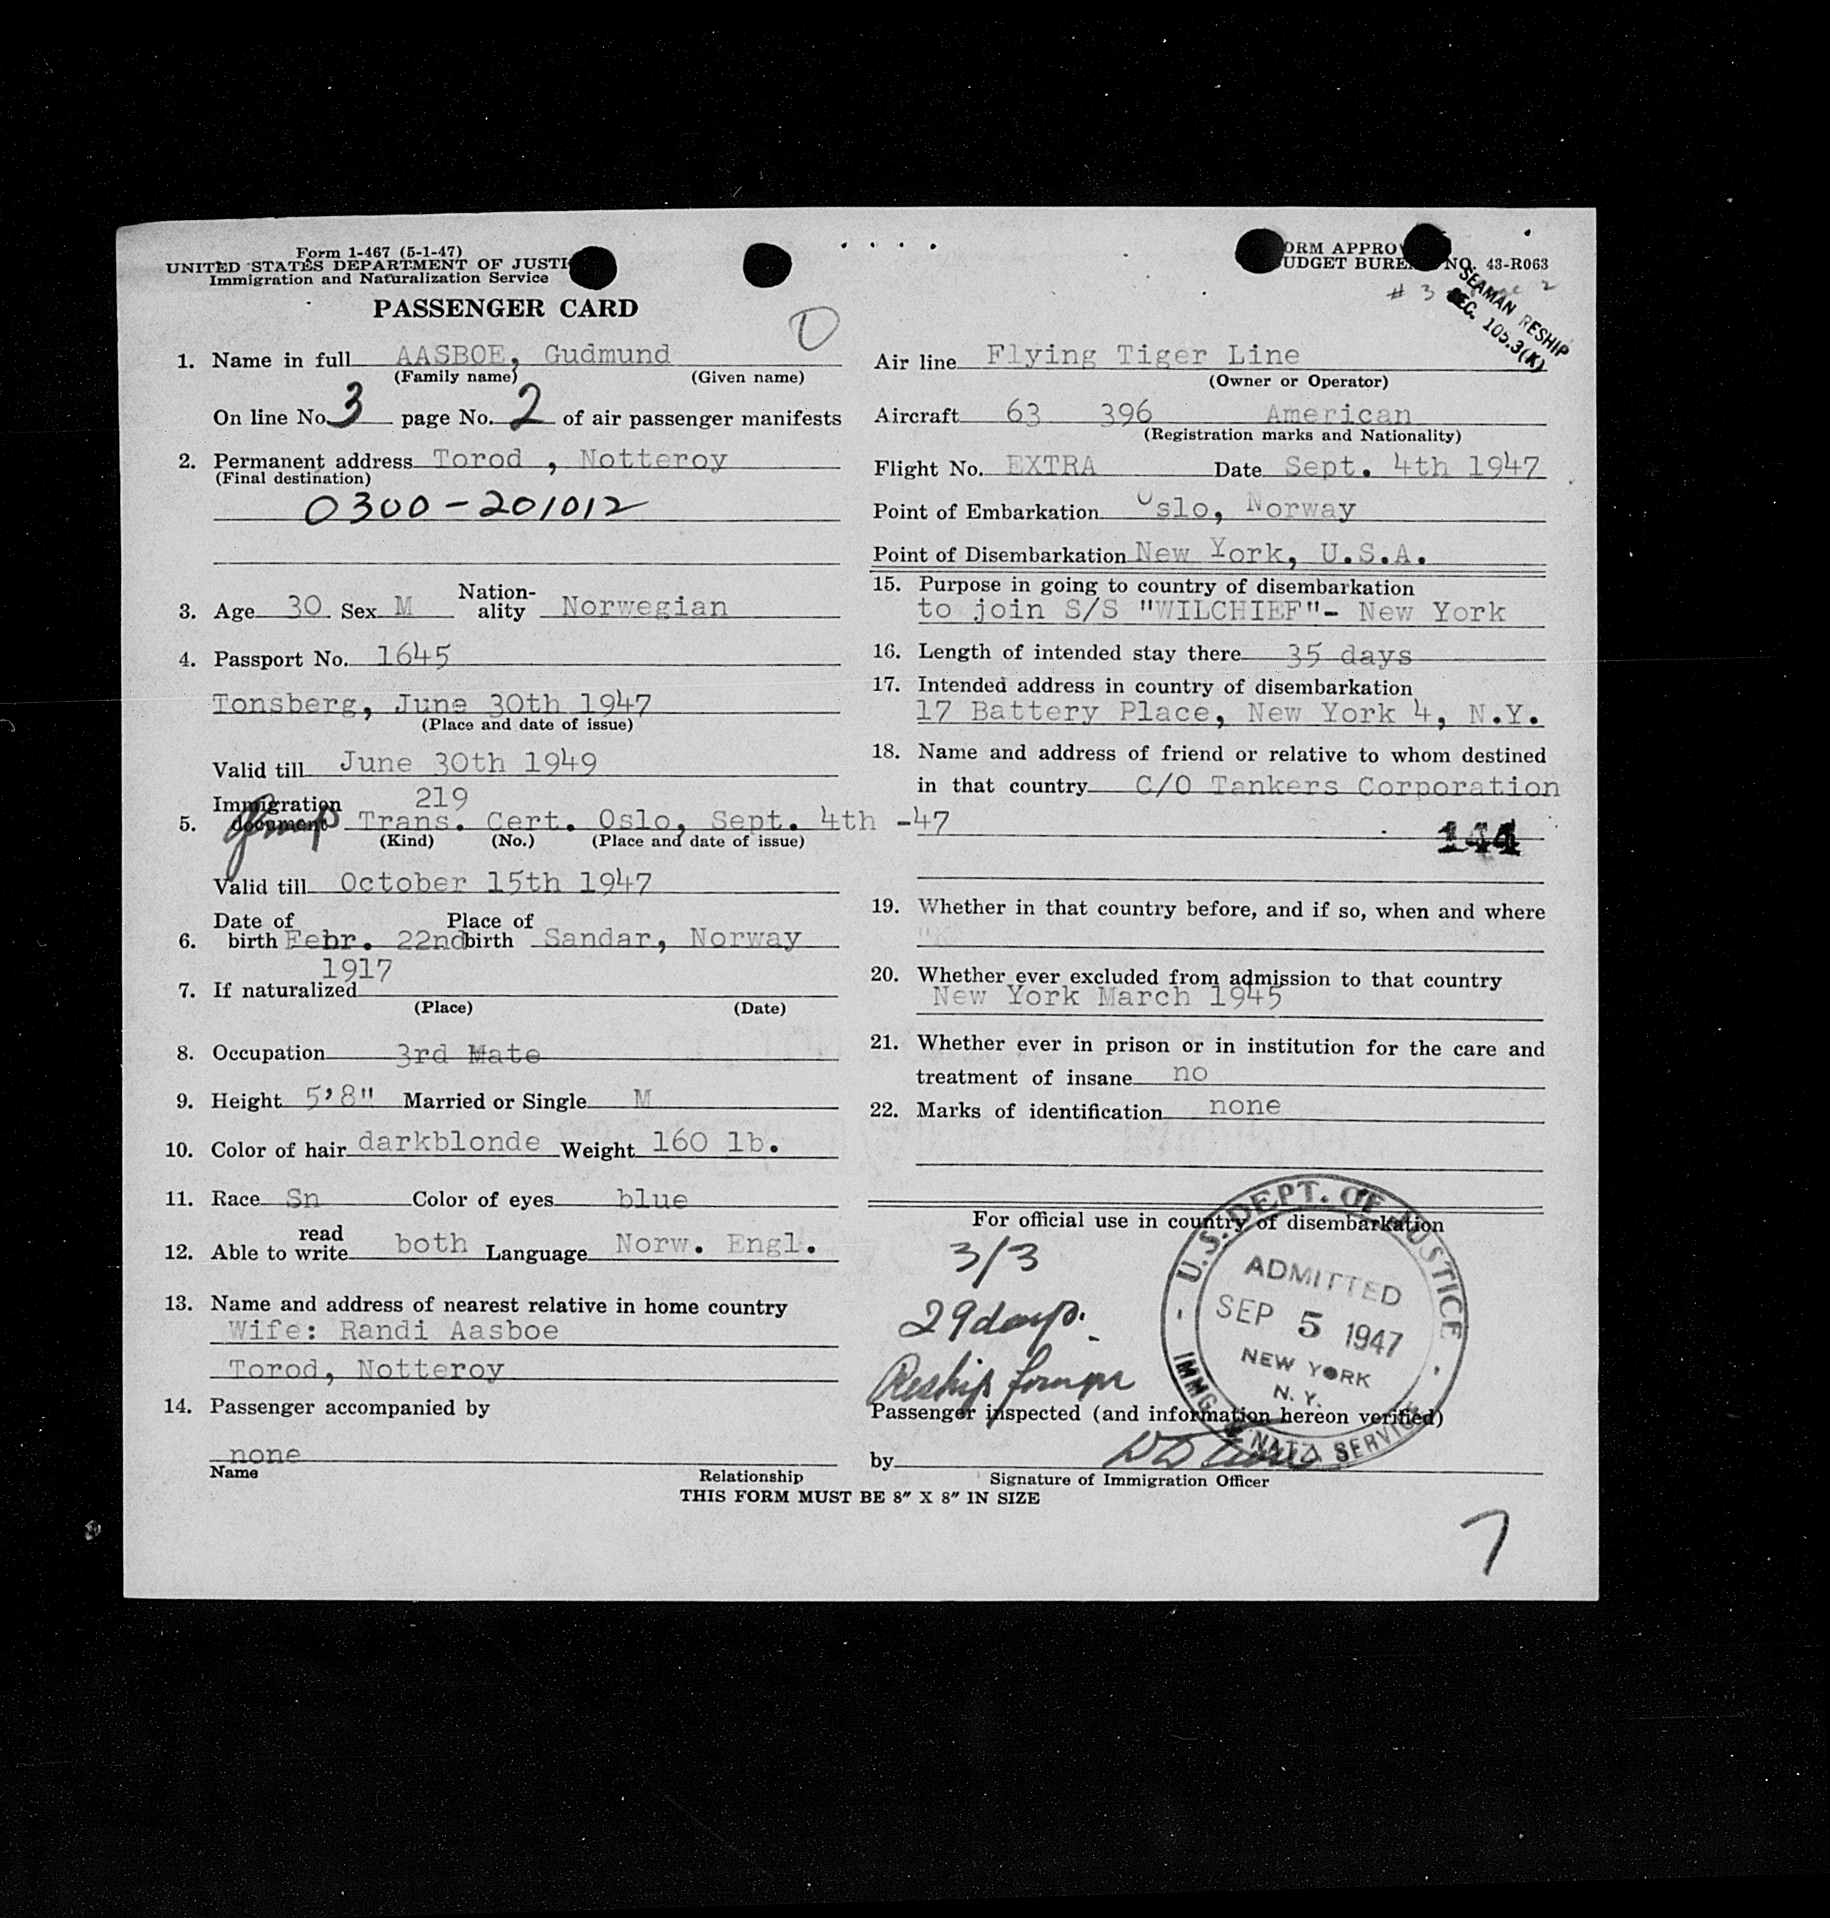 Form 1-467 (5-1-47)
UNITED STATES DEPARTMENT OF JUSTI
Immigration and Naturalization Service
PASSENGER CARD
1. Name in full AASBOE, Gudmund
(Family name) (Given name)
On line No. 3 page No. 2 of air passenger manifests
2. Permanent address Torod , Notteroy
(Final destination)
0300-201012
3. Age 30 Sex M Nation-
ality Norwegian
4. Passport No. 1645
Tonsberg, June 30th 1947
(Place and date of issue)
Valid till June 30th 1949
Immigration 219
5. document Trans. Cert. Oslo, Sept. 4th -47
(Kind) (No.) (Place and date of issue)
Valid till October 15th 1947
Date of Place of
6. birth Febr. 22nd birth Sandar, Norway
1917
7. If naturalized
(Place) (Date)
8. Occupation 3rd Mate
9. Height 5'8" Married or Single M
10. Color of hair darkblonde Weight 160 lb.
11. Race Sn Color of eyes blue
read
12. Able to write both Language Norw. Engl.
13. Name and address of nearest relative in home country
Wife: Randi Aasboe
Torod, Notteroy
14. Passenger accompanied by
none
Name Relationship
THIS FORM MUST BE 8" X 8" IN SIZE
ORM APPRO
UDGET BURE NO. 43-R063
# 3 2
SEAMAN RESHIP
SEC. 105.3(K)
Air line Flying Tiger Line
(Owner or Operator)
Aircraft 63 396 American
(Registration marks and Nationality)
Flight No. EXTRA Date Sept. 4th 1947
Point of Embarkation Oslo, Norway
Point of Disembarkation New York, U.S.A.
15. Purpose in going to country of disembarkation
to join S/S "WILCHIEF"- New York
16. Length of intended stay there 35 days
17. Intended address in country of disembarkation
17 Battery Place, New York 4, N.Y.
18. Name and address of friend or relative to whom destined
in that country C/O Tankers Corporation
144
19. Whether in that country before, and if so, when and where
20. Whether ever excluded from admission to that country
New York March 1945
21. Whether ever in prison or in institution for the care and
treatment of insane no
22. Marks of identification none
For official use in country of disembarkation
3/3
29 days.
Reship
U.S. DEPT. OF JUSTICE
ADMITTED
SEP 5 1947
NEW YORK
N.Y.
IMMG. & NATZ. SERVICE
Passenger inspected (and information hereon verified)
by
Signature of Immigration Officer
7